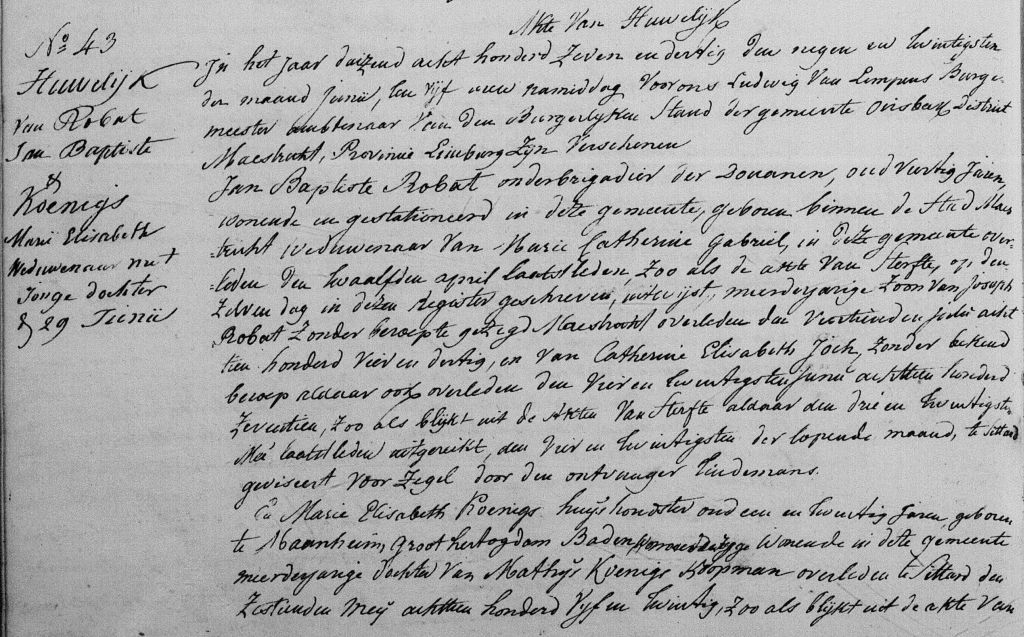 Akte Van Huwelijk
No 43
Huwelijk
Van Robat
Jan Baptiste
&
Koenigs
Marie Elisabeth
Weduwenaar met
Jonge dochter
29 Junii
In het Jaar duizend acht honderd Zeven en dertig den negen en twintigsten
der maand Junii, ten vijf uure namiddag Voor ons Ludwig Van Limpens Burge
meester ambtenaar Van den Burgerlyken Stand der gemeente Oirsbeek District
Maestricht, Provinie Limburg Zyn Verschenen
Jan Baptiste Robat onderbrigadier der Douanen, oud Viertig Jaren,
wonende en gestationeerd in deze gemeente, geboren binnen de Stad Maes
tricht weduwenaar Van Marie Catherine Gabriel, in deze gemeente over-
leden den twaalfden april laatstleden, Zoo als de akte Van Sterfte, op den
Zelven dag in dezen Register geschreven, uitwijst, meerderjarige Zoon Van Joseph
Robat Zonder beroep te gezegd Maestricht overleden den Viertienden Julii acht
tien honderd Vier en dertig, en Van Catherine Elisabeth Joch, Zonder bekend
beroep aldaar ook overleden den Vier en twintigsten Junii achttien honderd
Zeventien, Zoo als blijkt uit de Akten Van Sterfte aldaar den drie en twintigste
Mei laatstleden uitgereikt, den Vier en twintigsten der lopende maand, te Sittard
geviseert Voor Zegel door den ontvanger Lindemans.
En Marie Elisabeth Koenigs huyshoudster oud een en twintig Jaren, geboren
te Mannheim, Groot hertogdom Baden wonende in deze gemeente
meerderjarige dochter Van Mathijs Koenigs Koopman overleden te Sittard den
Zestienden Meij achttien honderd Vyf en twintig, Zoo als blijkt uit de akte Van